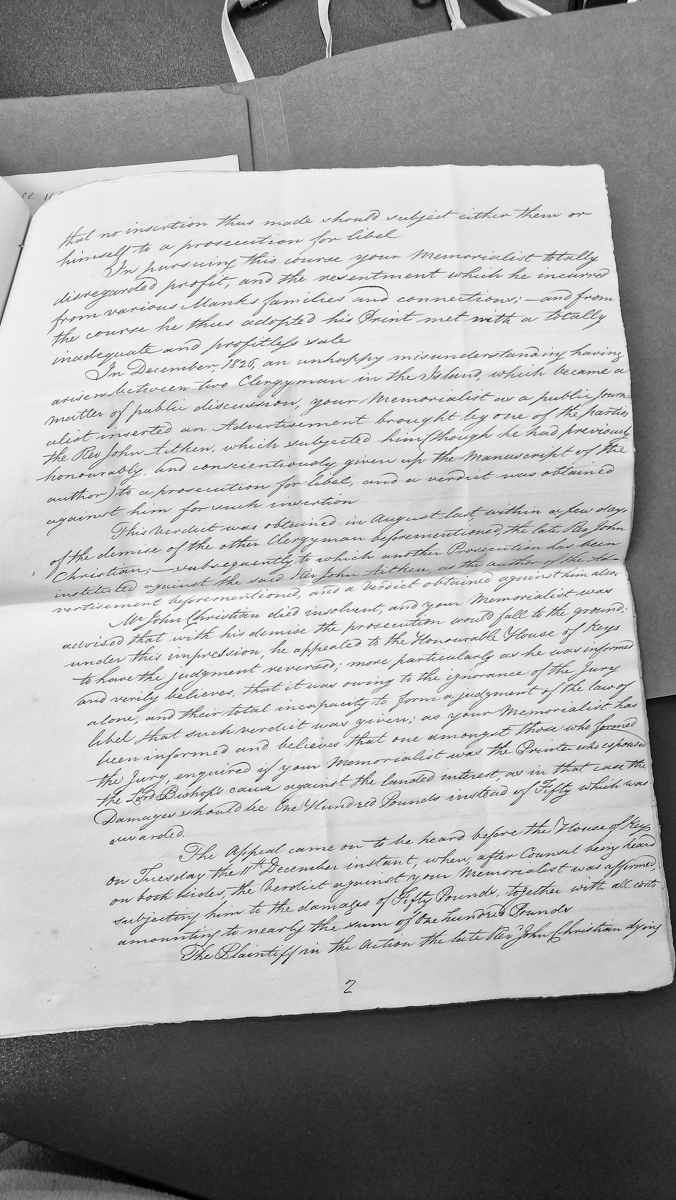 that no insertion thus made should subject either them or
himself to a prosecution for libel
In pursuing this course your Memorialist totally
disregarded profit, and the resentment which he incurred
from various Manks families and connections; – and from
the course he thus adopted his Print met with a totally
inadequate and profitless sale
In December, 1826, an unhappy misunderstanding having
arisen between two Clergyman in the Island, which became a
matter of public discussion, your Memorialist as a public Journ-
alist inserted an Advertisement brought by one of the parties
the Rev John Aitken, which subjected him (though he had previously
honourably, and conscientiously given up the Manuscript of the
author) to a prosecution for libel, and a verdict was obtained
against him for such insertion
This Verdict was obtained in August last within a few days
of the demise of the other Clergyman beforementioned, the late Rev John
Christian; – subsequently to which another Prosecution has been
instituted against the said Rev John Aitken, as the author of the Ad-
vertisement beforementioned, and a verdict obtained against him also.
Mr John Christian died insolvent, and your Memorialist was
advised that with his demise the prosecution would fall to the ground;
under this impression, he appealed to the Honourable House of Keys
to have the judgment reversed; more particularly as he was informed
and verily believes, that it was owing to the ignorance of the Jury
alone, and their total incapacity to form a judgment of the law of
libel that such verdict was given; as your Memorialist has
been informed and believes that one amongst those who formed
the Jury, enquired if your Memorialist was the Printer who espoused
the Lord Bishops cause against the landed interest, as in that case the
Damages should be One Hundred Pounds instead of Fifty which was
awarded.
The Appeal came on to be heard before the House of Keys
on Tuesday the 11th December instant, when, after Counsel being heard
on both sides, the Verdict against your Memorialist was affirmed,
subjecting him to the damages of Fifty Pounds, together with all costs
amounting to nearly the sum of One hundred Pounds
The Plaintiff in the Action the late Rev John Christian dying
2